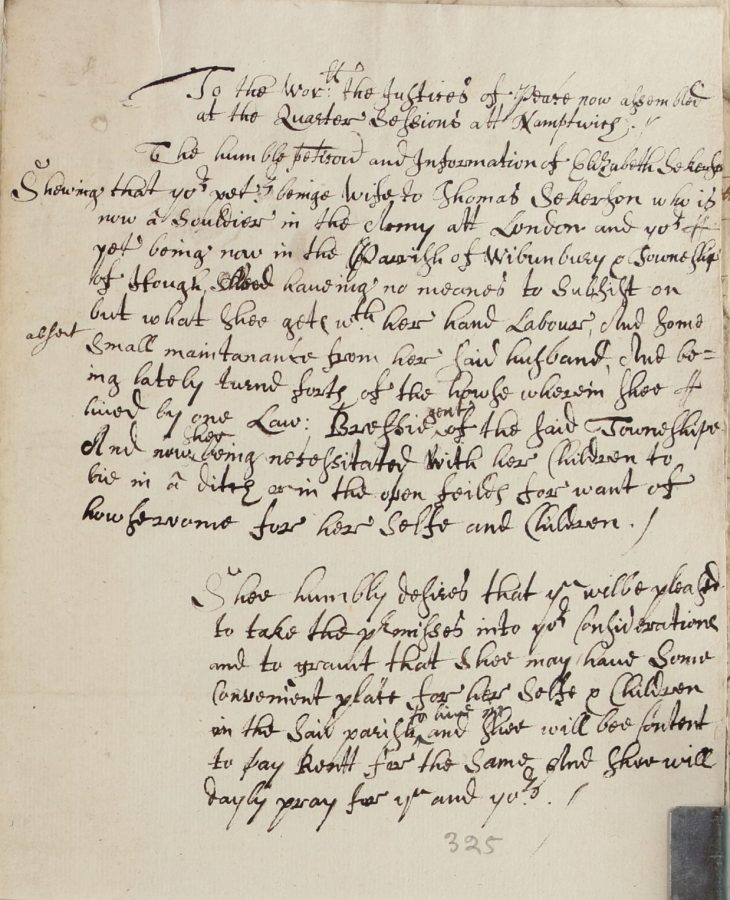 To the Wor:tt the Justices of Peace now assembled
at the Quarter Sessions att Namptwich ./
The humble peticon and Information of Elizabeth Sekerson
Shewing that yor petr: beinge wife to Thomas Sekerson who is
now a Souldier in the Army att London and yor
petr being now in the Parrish of Wibunbury & Towneship
of Hough, haveing no meanes to Subsist on
but what shee gets wth her hand Labour, And some
absent
small maintanance from her said husband, And be=
ing lately turnd forth of the howse wherein shee
lived by one Law: Bressie gent of the said Towneshipe
And now shee being necessitated with her Children to
lie in a ditch or in the open feilds for want of
howseroome for her selfe and Children . /
Shee humbly desires that yu wilbe pleased
to take the p'misses into yor Consideracions
and to graunt that shee may have some
Convenient place for her selfe & Children
in the said parish to live in and shee will bee Content
to pay Rentt for the same, And shee will
dayly pray for yu and yors: . /
325